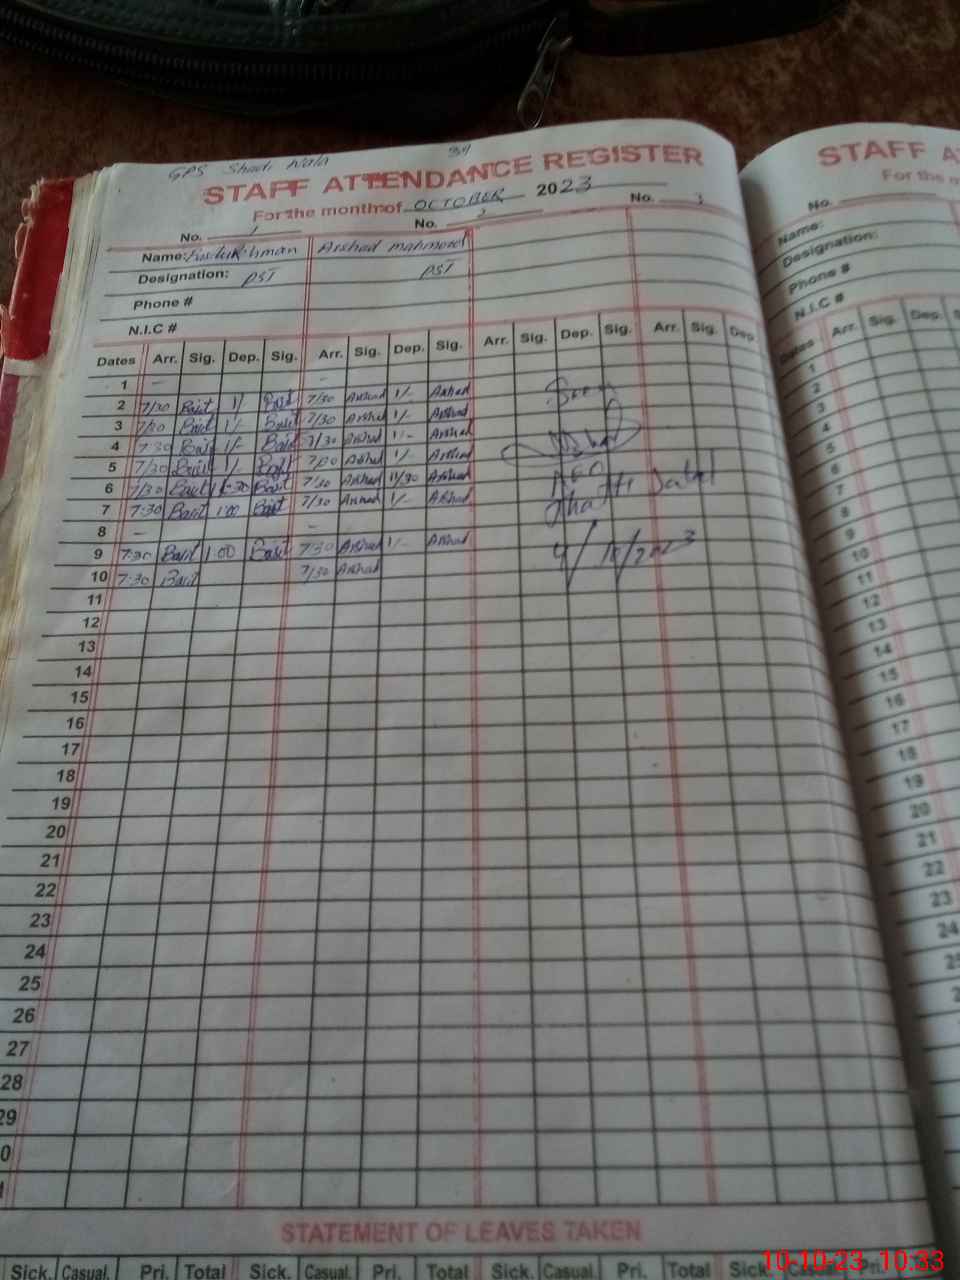 GPS Shadi Wala 34
STAFF ATTENDANCE REGISTER
For the month of OCTOBER 2023
No. 1 No. 2 No. 3
Name: Arshad mahmood
Designation: PST PST
Phone #
N.I.C #
Dates Arr. Sig. Dep. Sig. Arr. Sig. Dep. Sig. Arr. Sig. Dep. Sig. Arr. Sig. Dep.
1 - -
2 7/30 Basit 1/- Basit 7/30 Arshad 1/- Arshad
3 7/30 Basit 1/- Basit 7/30 Arshad 1/- Arshad
4 7:30 Basit 1/- Basit 7/30 Arshad 1/- Arshad
5 7/30 Basit 1/- Basit 7/30 Arshad 1/- Arshad
6 7/30 Basit Basit 7/30 Arshad 11/30 Arshad
7 7:30 Basit 1:00 Basit 7/30 Arshad 1/- Arshad
8 - -
9 7:30 Basit 1:00 Basit 7:30 Arshad 1/- Arshad
10 7:30 Basit 7/30 Arshad
AEO
4/10/2023
11
12
13
14
15
16
17
18
19
20
21
22
23
24
25
26
27
28
29
0
STATEMENT OF LEAVES TAKEN
Sick. Casual. Pri. Total Sick. Casual. Pri. Total Sick. Casual. Pri. Total Sick. Casual. Pri. Total
STAFF
For the m
No.
Name:
Designation:
Phone #
N.I.C #
Dates Arr. Sig. Dep.
1
2
3
4
5
6
7
8
9
10
11
12
13
14
15
16
17
18
19
20
21
22
23
24
10-10-23 10:33